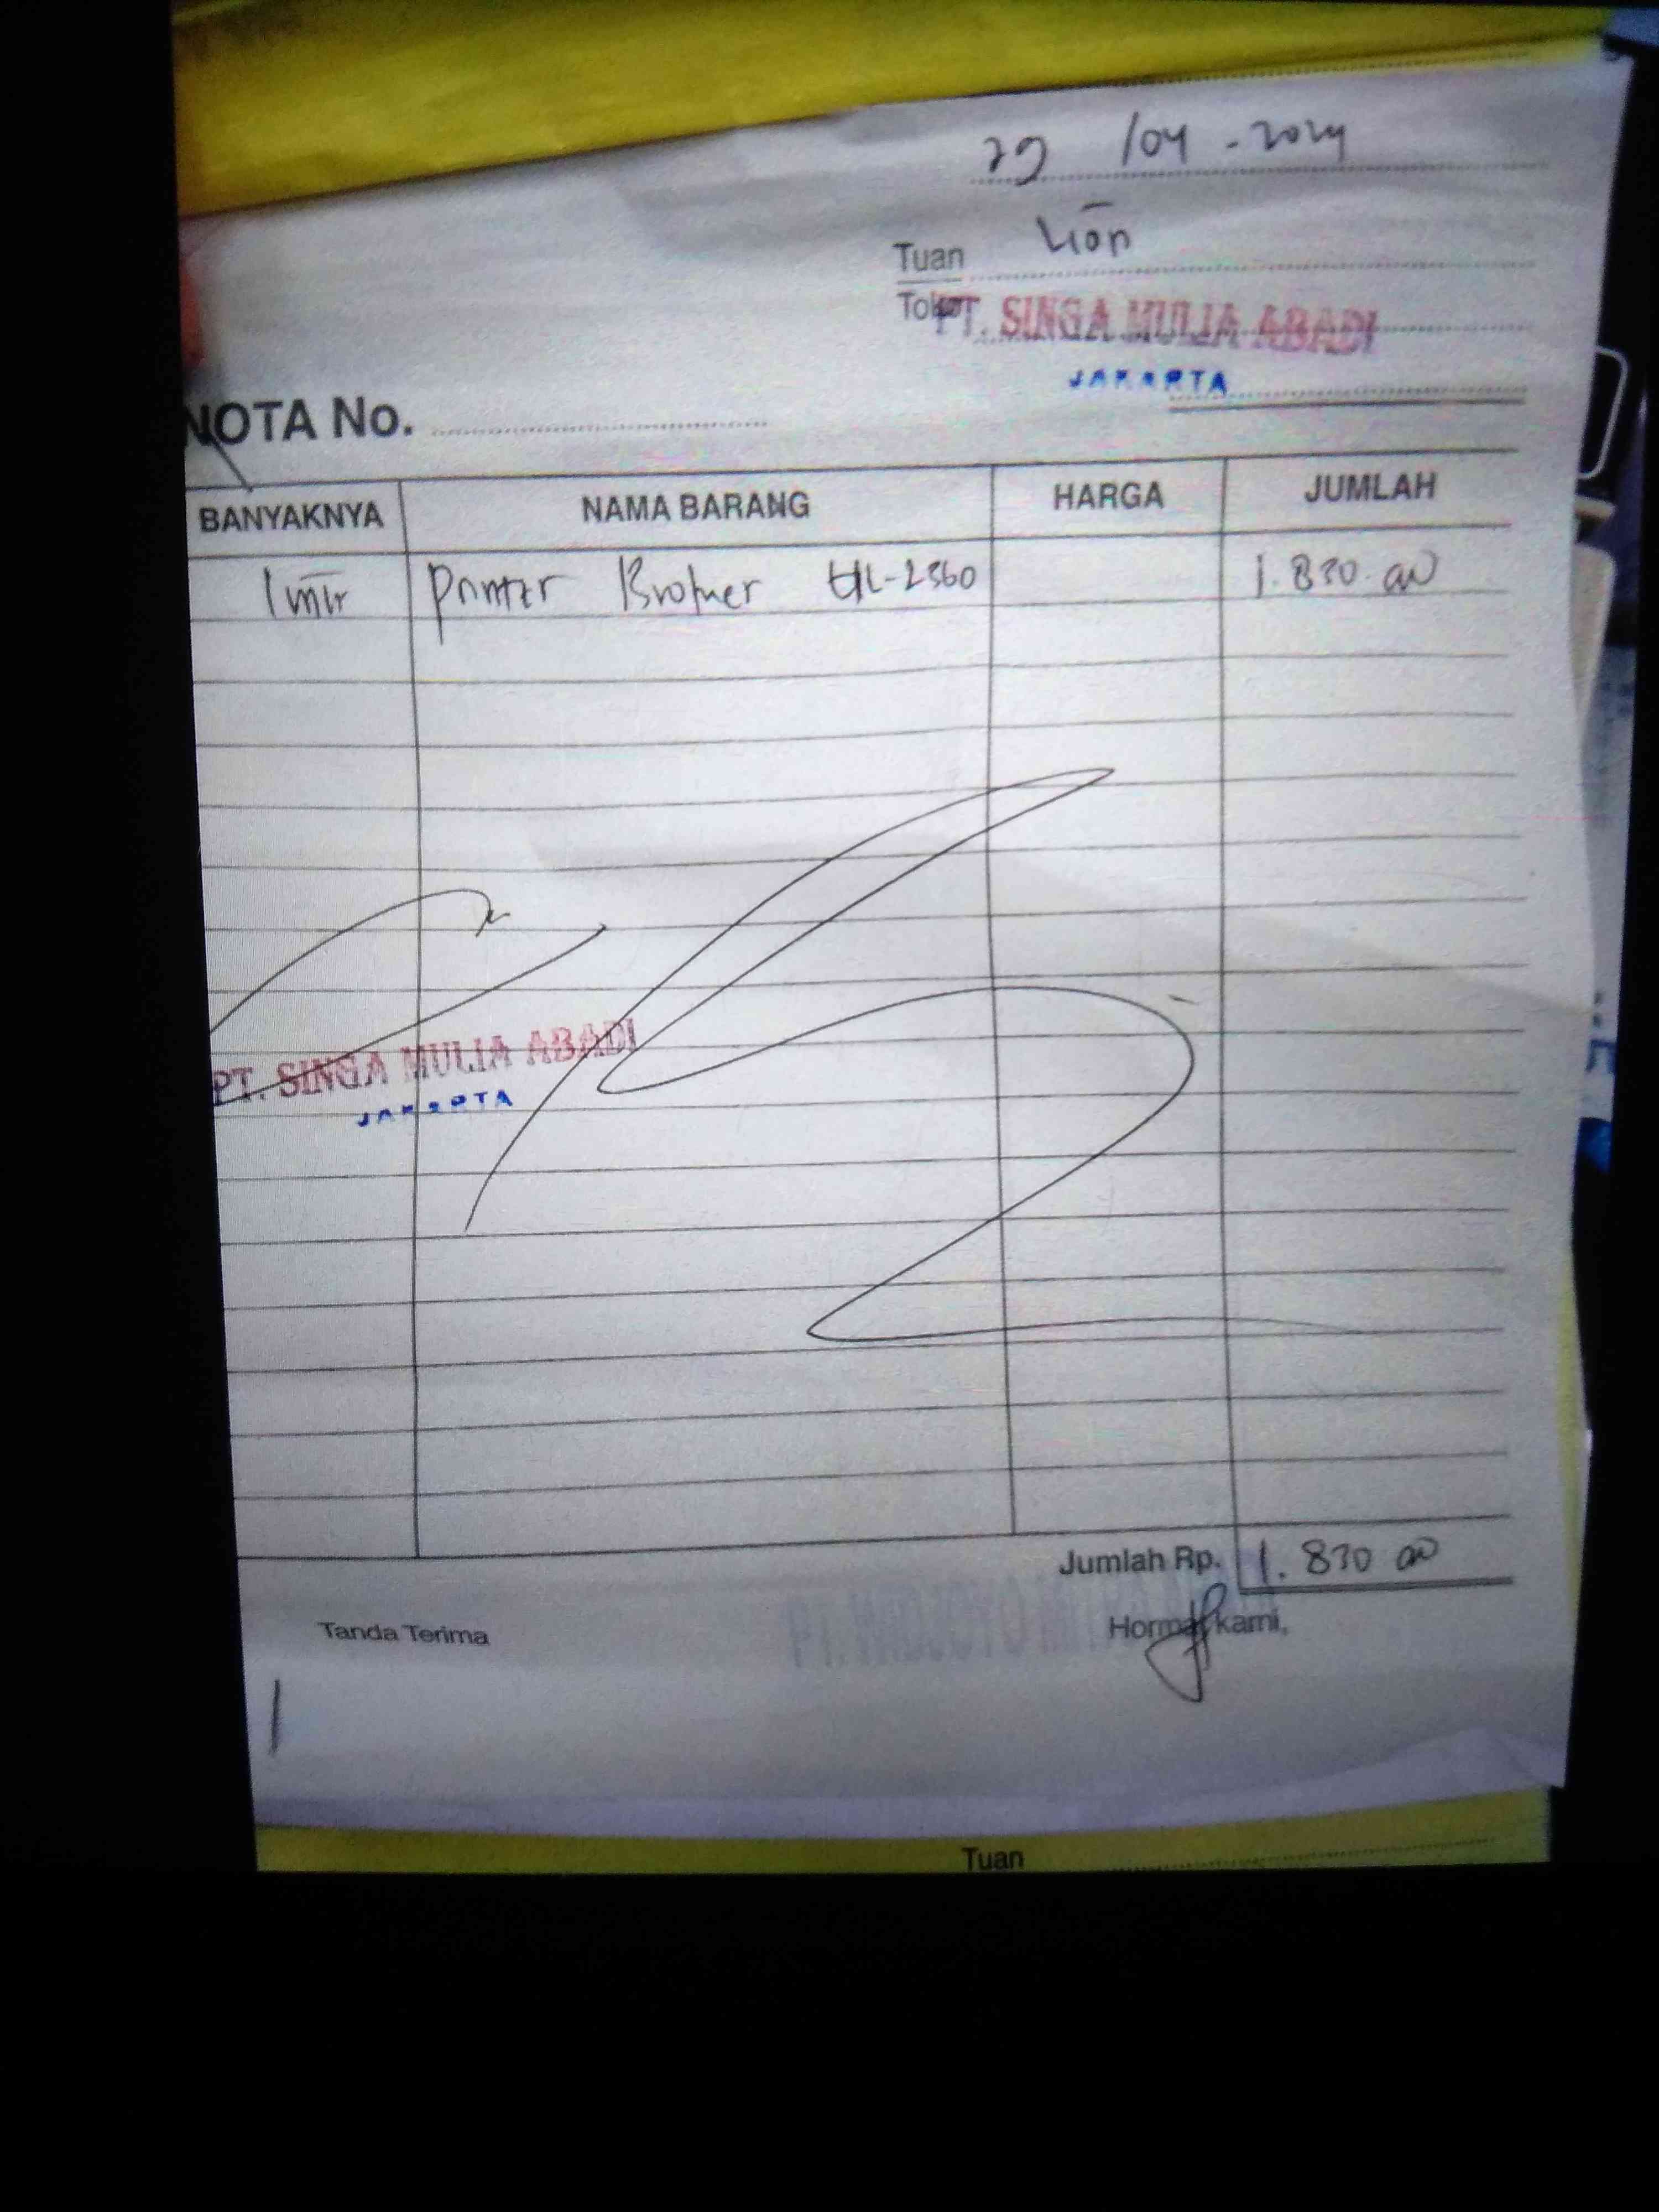 29 /04 - 2024
Tuan Lion
Toko PT. SINGA MULIA ABADI
JAKARTA
NOTA No.
BANYAKNYA NAMA BARANG HARGA JUMLAH
1 unit Printer Brother HL-2360 1.830.000
PT. SINGA MULIA ABADI
JAKARTA
Jumlah Rp. 1.830 000
Tanda Terima Hormat kami,
Tuan